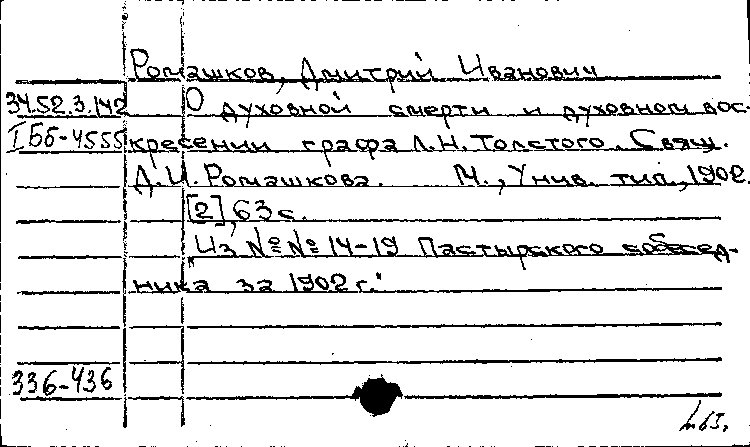 Ромашков, Дмитрий Иванович
34.52.3.142 О духовной смерти и духовном вос-
I Бб-4555 кресении графа Л.Н. Толстого. Свящ.
Д.И. Ромашкова. М., Унив. тип., 1902.
[2], 63 с.
"Из №№ 14-19 Пастырского собесед-
ника за 1902 г."
336-436